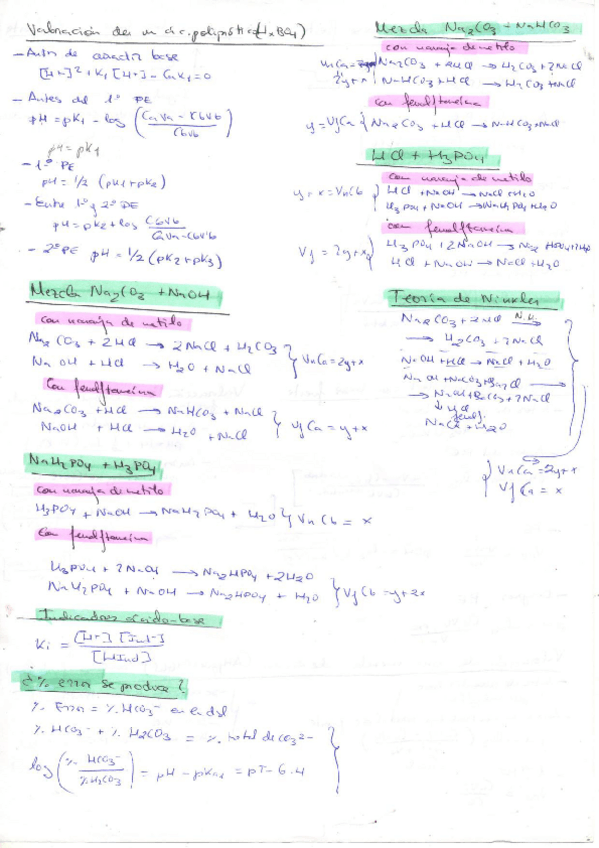 Valoración de un ác. poliprótico (HxBO4)
– Antes de añadir base
[H+]² + K1 [H+] – CaK1 = 0
– Antes del 1º PE
pH = pK1 – log (CaVa – CbVb / CbVb)
pH = pK1
– 1º PE
pH = 1/2 (pK1 + pK2)
– Entre 1º y 2º PE
pH = pK2 + log CbVb / CaVa – CbVb
– 2º PE pH = 1/2 (pK2 + pK3)
Mezcla Na2CO3 + NaOH
con naranja de metilo
Na2CO3 + 2HCl → 2NaCl + H2CO3
NaOH + HCl → H2O + NaCl
} VnCa = 2y + x
Con fenolftaleína
Na2CO3 + HCl → NaHCO3 + NaCl
NaOH + HCl → H2O + NaCl
} VfCa = y + x
NaH2PO4 + H3PO4
con naranja de metilo
H3PO4 + NaOH → NaH2PO4 + H2O } VnCb = x
con fenolftaleína
H3PO4 + 2NaOH → Na2HPO4 + 2H2O
NaH2PO4 + NaOH → Na2HPO4 + H2O } VfCb = y + 2x
Indicadores ácido-base
Ki = [H+] [Ind-] / [HInd]
¿% error se produce?
% Error = % HCO3- en el dsl
% HCO3- + % H2CO3 = % total de CO3 2-
log (% HCO3- / % H2CO3) = pH – pKa1 = pT – 6.4
Mezcla Na2CO3 – NaHCO3
con naranja de metilo
VnCa = 2y + x { Na2CO3 + 2HCl → H2CO3 + 2NaCl
NaHCO3 + HCl → H2CO3 + NaCl
con fenolftaleína
y = VfCa { Na2CO3 + HCl → NaHCO3 + NaCl
HCl + H3PO4
con naranja de metilo
y + x = VnCb { HCl + NaOH → NaCl + H2O
H3PO4 + NaOH → NaH2PO4 + H2O
con fenolftaleína
Vf = 2y + x { H3PO4 + 2NaOH → Na2HPO4 + 2H2O
HCl + NaOH → NaCl + H2O
Teoría de Winkler
Na2CO3 + 2HCl N.M.
→ H2CO3 + 2NaCl
NaOH + HCl → NaCl + H2O
NaOH + Na2CO3 + BaCl2 →
→ NaOH + BaCO3 + 2NaCl
↓ HCl fenolf.
NaCl + H2O
{ VnCa = 2y + x
VfCa = x